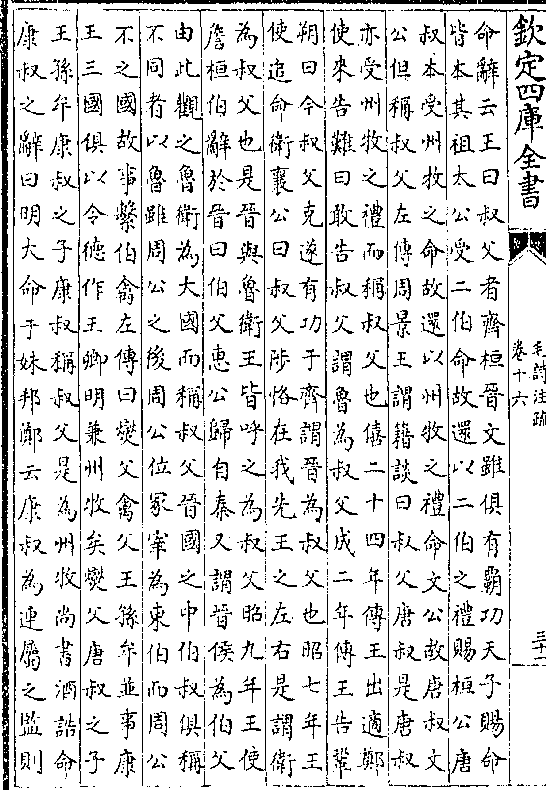 欽定四庫全書
毛詩注疏
卷十六
三十二
命辭云王曰叔父者齊桓晉文雖俱有霸功天子賜命
皆本其祖太公受二伯命故還以二伯之禮賜桓公唐
叔本受州牧之命故還以州牧之禮命文公故唐叔文
公但稱叔父左傳周景王謂籍談曰叔父唐叔是唐叔
亦受州牧之禮而稱叔父也僖二十四年傳王出適鄭
使來告難曰敢告叔父謂魯為叔父成二年傳王告鞏
朔曰今叔父克遂有功于齊謂晉為叔父也昭七年王
使追命衛襄公曰叔父陟恪在我先王之左右是謂衛
為叔父也是晉與魯衛王皆呼之為叔父昭九年王使
詹桓伯辭於晉曰伯父惠公歸自秦又謂晉侯為伯父
由此觀之魯衛為大國而稱叔父晉國之中伯叔俱稱
不同者以魯雖周公之後周公位冢宰為東伯而周公
不之國故事繫伯禽左傳曰燮父禽父王孫牟並事康
王三國俱以令德作王卿明兼州牧矣燮父唐叔之子
王孫牟康叔之子康叔稱叔父是為州牧尚書酒誥命
康叔之辭曰明大命于妹邦鄭云康叔為連屬之監則